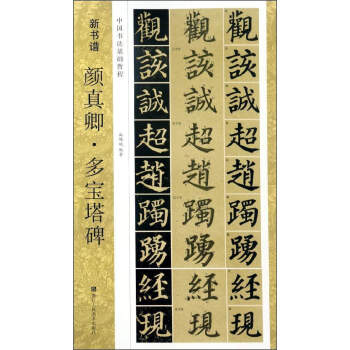 新书谱
颜真卿·多宝塔碑
中国书法基础教程
觀 觀 觀
該 該 該
誠 誠 誠
超 超 超
趙 趙 趙
躅 躅 躅
踴 踴 踴
經 經 經
現 現 現